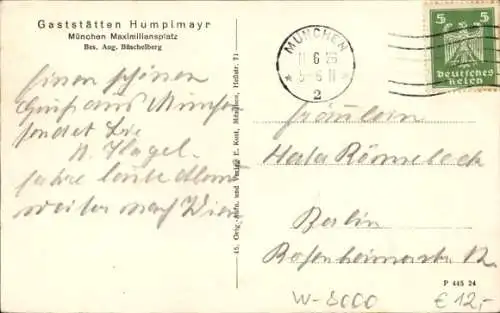 Gaststätten Humplmayr
München Maximiliansplatz
Bes. Aug. Büschelberg
Einen schönen
Gruß aus München
sendet Dir
H. Nagel.
fahre heute Abend
weiter nach Wien
45. Orig.-Aufn. und Verlag E. Kost, München, Heßstr. 71
MÜNCHEN
11 6 26
5-6 N
2
5 5
Deutsches
Reich
Fräulein
Berlin
Rosenheimerstr. 12
P 445 24
W-8000
€ 12,-